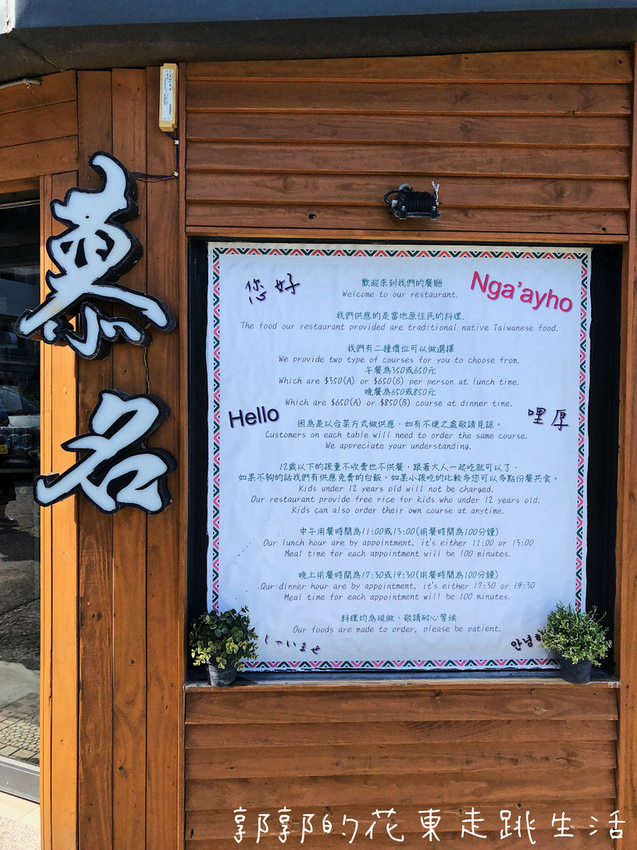 慕名
您好
Nga'ayho
歡迎來到我們的餐廳
Welcome to our restaurant.
我們供應的是當地原住民的料理.
The food our restaurant provided are traditional native Taiwanese food.
我們有二種價位可以做選擇
We provide two type of courses for you to choose from.
午餐為350或650元
Which are $350(A) or $650(B) per person at lunch time.
晚餐為650或850元
Which are $650(A) or $850(B) course at dinner time.
Hello
哩厚
因為是以合菜方式做供應, 如有不便之處敬請見諒。
Customers on each table will need to order the same course.
We appreciate your understanding.
12歲以下的孩童不收費也不供餐, 跟著大人一起吃就可以了,
如果不夠的話我們有供應免費的白飯, 如果小孩吃的比較多您可以多點份餐共食。
Kids under 12 years old will not be charged.
Our restaurant provide free rice for kids who under 12 years old.
Kids can also order their own course at anytime.
中午用餐時間為11:00或13:00(用餐時間為100分鐘)
Our lunch hour are by appointment, it's either 11:00 or 13:00
Meal time for each appointment will be 100 minutes.
晚上用餐時間為17:30或19:30(用餐時間為100分鐘)
Our dinner hour are by appointment, it's either 17:30 or 19:30
Meal time for each appointment will be 100 minutes.
料理均為現做, 敬請耐心等候
Our foods are made to order, please be patient.
안녕하
郭郭的花東走跳生活